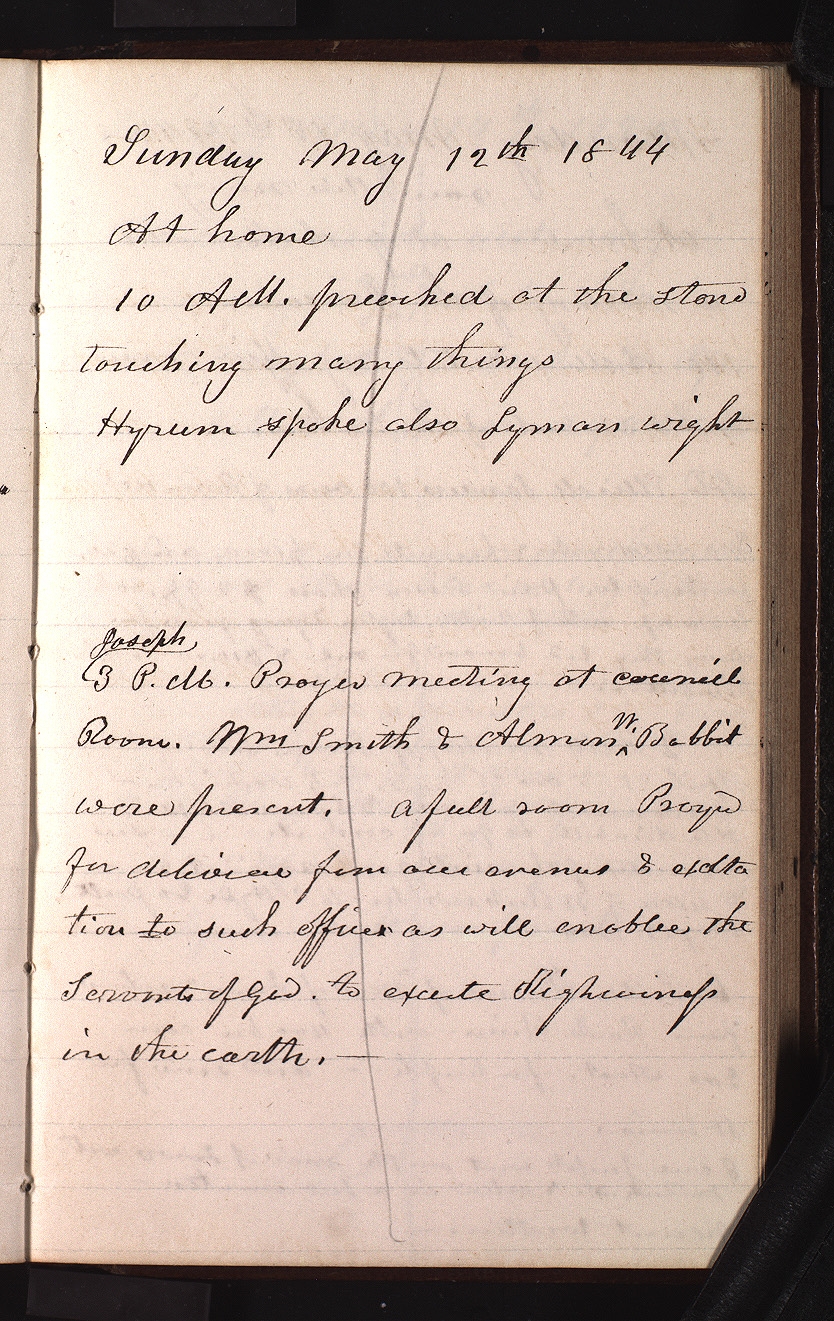 Sunday May 12th 1844
At home
10 AM. preached at the stand
touching many things
Hyrum spoke also Lyman wight
Joseph
3 P.M. Prayer meeting at council
Room. Wm Smith & Almon W. Babbit
were present. a full room Prayed
for deliverae from our enemis & exalta
tion to such offices as will enablee the
Servants of God. to excute Righteousness
in the earth.—